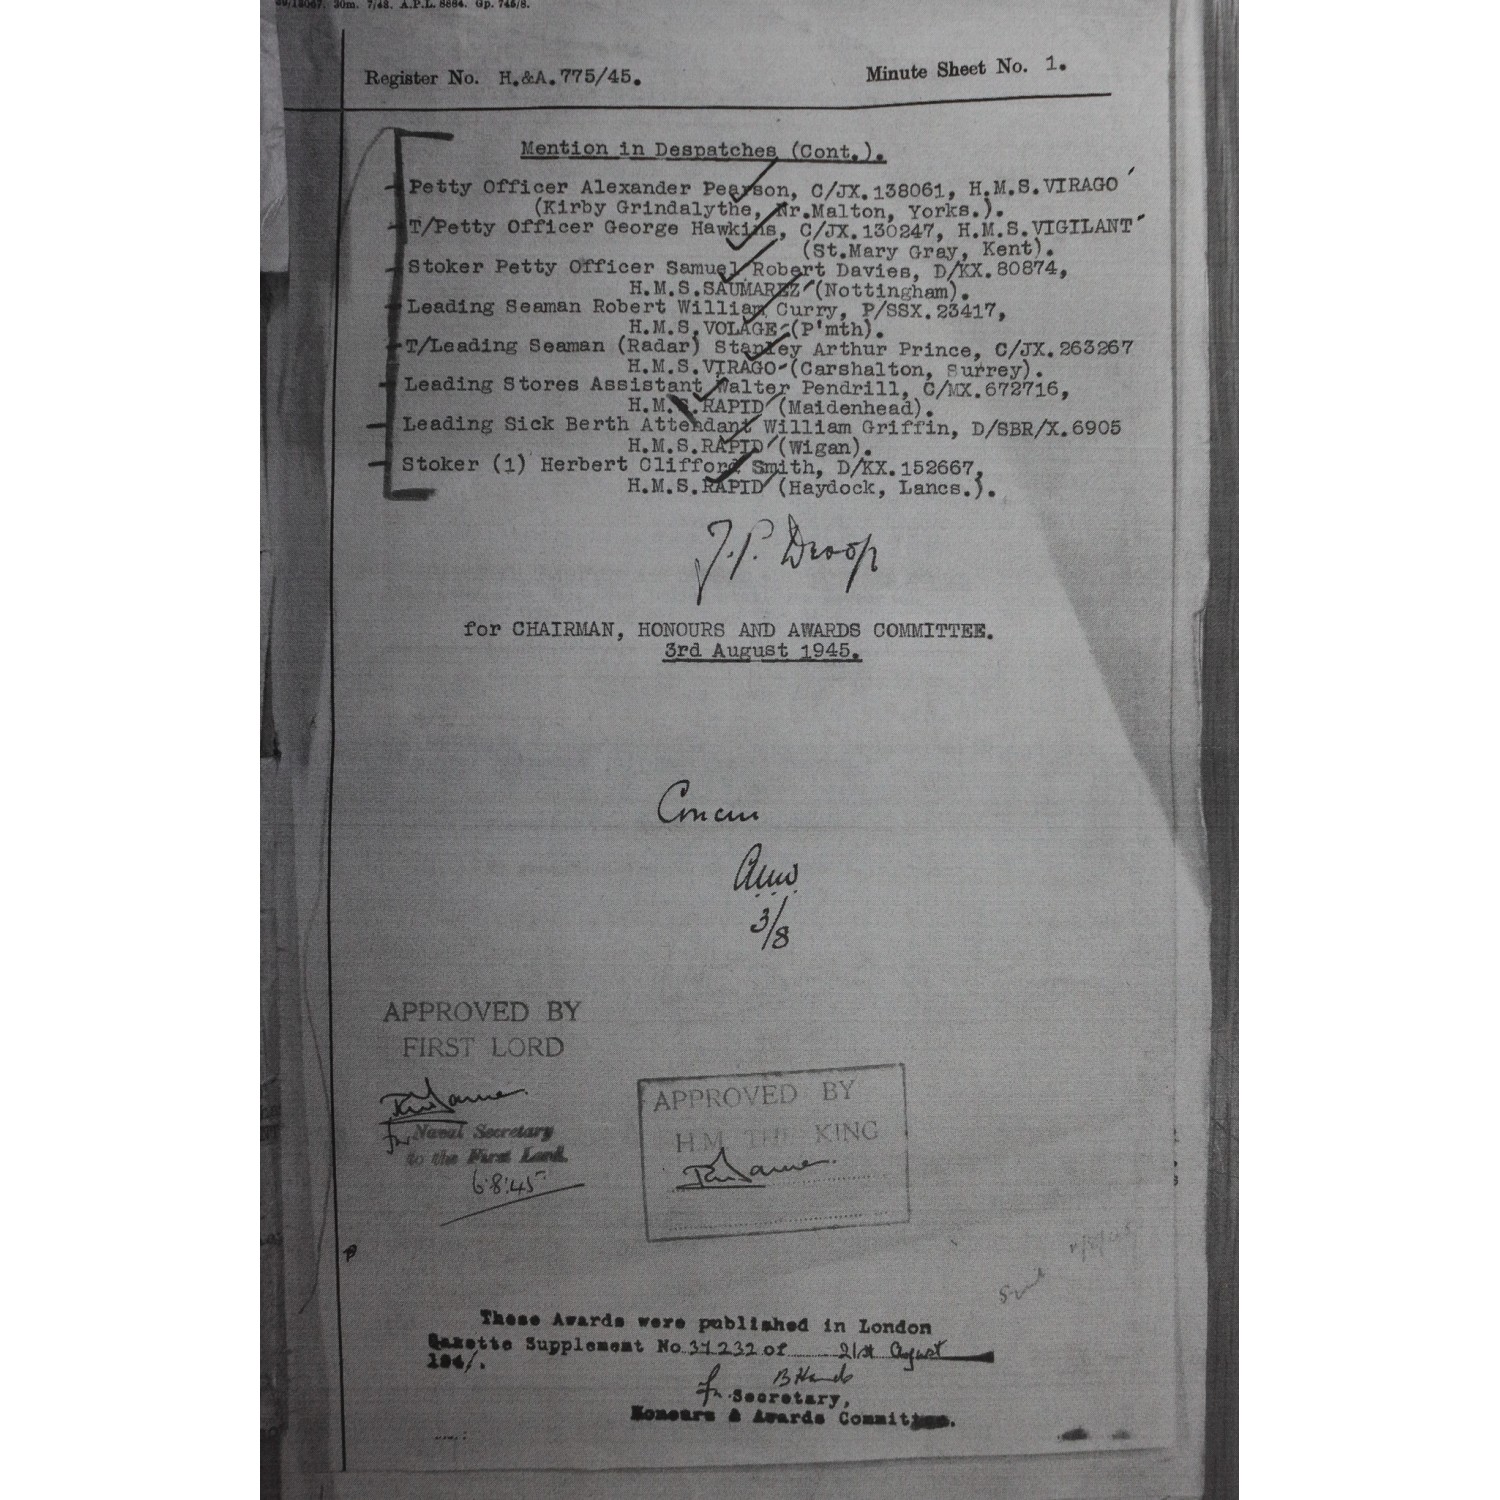 30m. 7/43. A.P.L. 8884. Gp. 745/8.
Register No. H.&A.775/45. Minute Sheet No. 1.
Mention in Despatches (Cont.).
Petty Officer Alexander Pearson, C/JX.138061, H.M.S.VIRAGO
(Kirby Grindalythe, Nr.Malton, Yorks.).
T/Petty Officer George Hawkins, C/JX.130247, H.M.S.VIGILANT
(St.Mary Gray, Kent).
Stoker Petty Officer Samuel Robert Davies, D/KX.80874,
H.M.S.SAUMAREZ (Nottingham).
Leading Seaman Robert William Curry, P/SSX.23417,
H.M.S.VOLAGE (P'mth).
T/Leading Seaman (Radar) Stanley Arthur Prince, C/JX.263267
H.M.S.VIRAGO (Carshalton, Surrey).
Leading Stores Assistant Walter Pendrill, C/MX.672716,
H.M.S.RAPID (Maidenhead).
Leading Sick Berth Attendant William Griffin, D/SBR/X.6905
H.M.S.RAPID (Wigan).
Stoker (1) Herbert Clifford Smith, D/KX.152667,
H.M.S.RAPID (Haydock, Lancs.).
J.P. Droop
for CHAIRMAN, HONOURS AND AWARDS COMMITTEE.
3rd August 1945.
Concur
3/8
APPROVED BY
FIRST LORD
for Naval Secretary
to the First Lord.
6.8.45
APPROVED BY
H.M. THE KING
These Awards were published in London
Gazette Supplement No 37232 of 21st August
194/.
for Secretary,
Honours & Awards Committee.